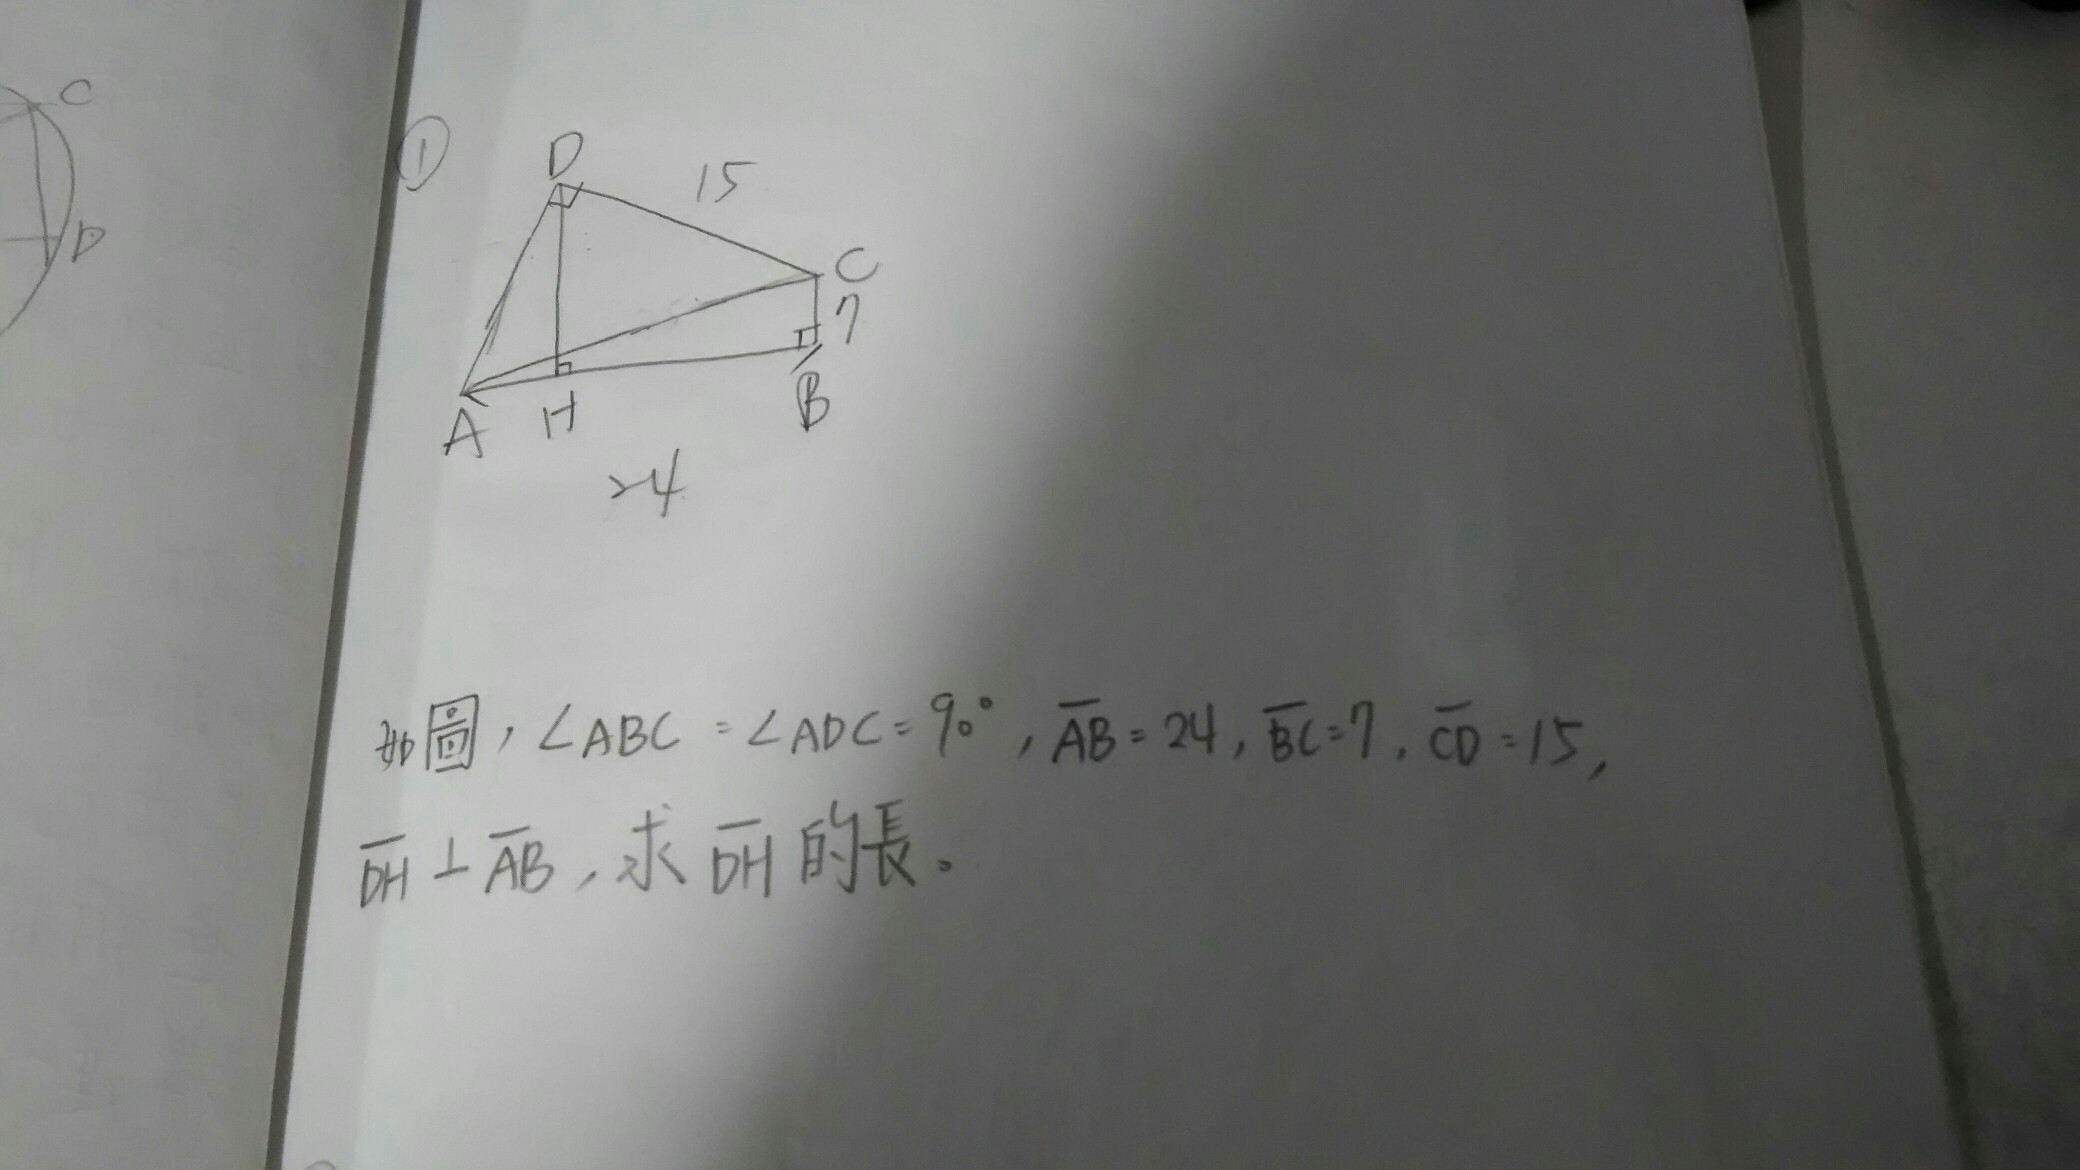 C
D
①
D
15
C
7
A
H
B
24
如圖，∠ABC=∠ADC=90°，A̅B̅=24，B̅C̅=7，C̅D̅=15，
D̅H̅⊥A̅B̅，求D̅H̅的長。